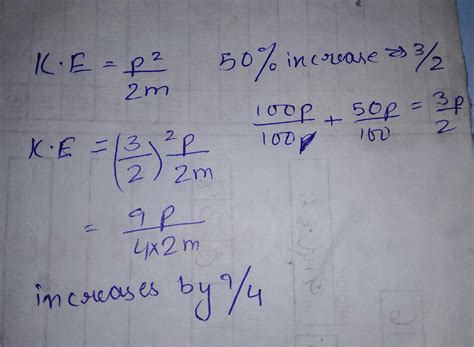 K.E = p²/2m
50% increase ⇒ 3/2
100p/100p + 50p/100 = 3p/2
K.E = (3/2)² p/2m
= 9p/4×2m
increases by 9/4